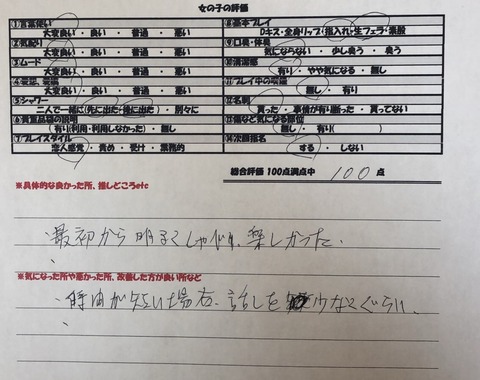 女の子の評価
①言葉使い
大変良い・良い・普通・悪い
②気配り
大変良い・良い・普通・悪い
③ムード
大変良い・良い・普通・悪い
大変良い・良い・普通・悪い
⑤シャワー
二人で一緒に(先に出た・後に出た)・別々に
⑥貴重品袋の説明
(有り(利用・利用しなかった)・無し
⑦プレイスタイル
恋人感覚・責め・受け・業務的
⑧基本プレイ
Dキス・全身リップ・指入れ・生フェラ・素股
⑨口臭・体臭
気にならない・少し臭う・臭う
⑩清潔感
有り・やや気になる・無し
⑪プレイ中の
無し・有り
⑫名刺
貰った・事情が有り断った・貰ってない
⑬傷など気になる部位
無し・有り( )
⑭次回指名
する・しない
総合評価 100点満点中 100 点
※具体的な良かった所、推しどころetc
・最初から明るくしゃべり、楽しかった、
※気になった所や悪かった所、改善した方が良い所など
・時間が短い場合、話しを少なくぐらい、